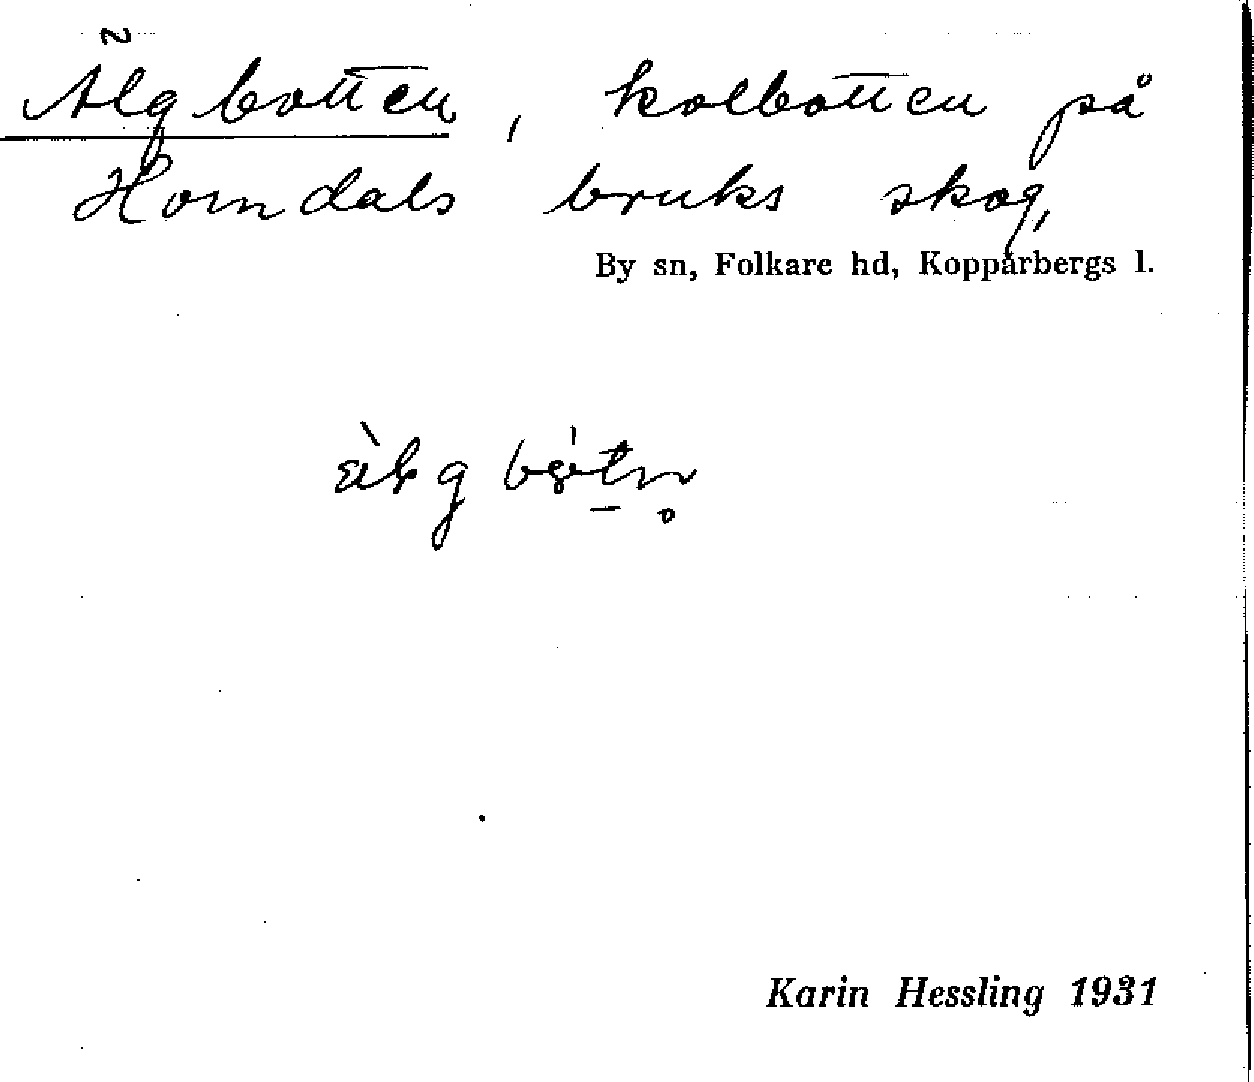 Älgbotten, kolbotten på
Horndals bruks skog,
By sn, Folkare hd, Kopparbergs l.
Karin Hessling 1931